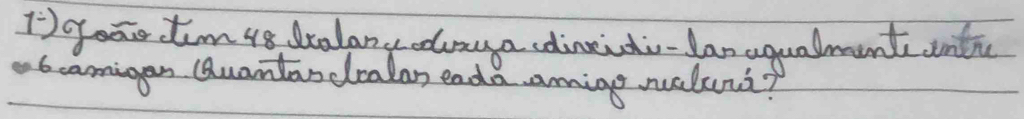 1-) João tem 48 balas e deseja dividi-las igualmente entre
6 amigos Quantas balas cada amigo receberá?